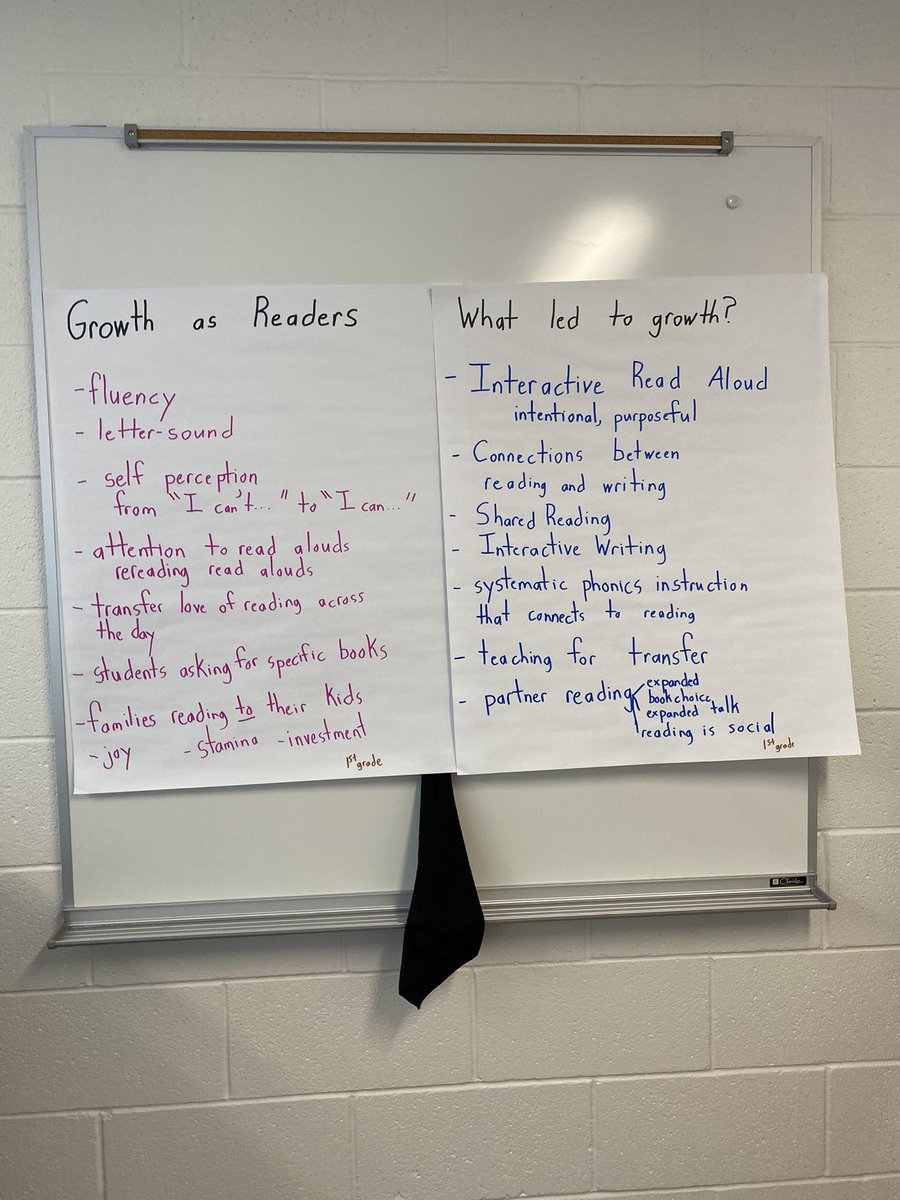 Growth as Readers
-fluency
- letter-sound
- self perception
from "I can't..." to "I can..."
- attention to read alouds
rereading read alouds
- transfer love of reading across
the day
- students asking for specific books
-families reading to their kids
-joy -stamina -investment
1st grade
What led to growth?
- Interactive Read Aloud
intentional, purposeful
- Connections between
reading and writing
- Shared Reading
- Interactive Writing
- systematic phonics instruction
that connects to reading
- teaching for transfer
- partner reading
expanded
book choice
expanded talk
reading is social
1st grade
Claridge